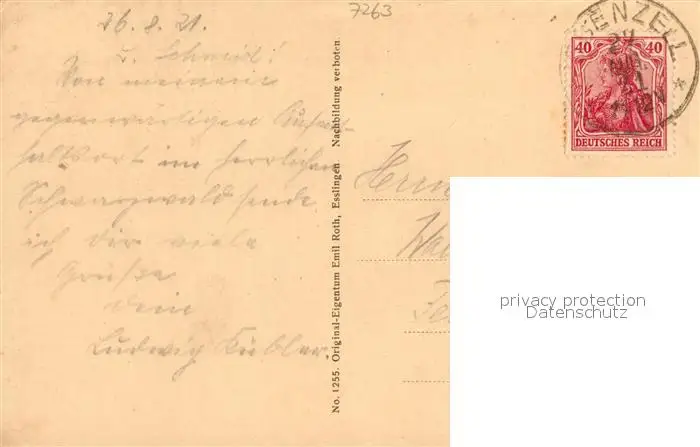 26.8.21.
7263
L. Schmid!
Von meinem
gegenwärtigen Aufent-
haltsort im herrlichen
Schwarzwald sende
ich dir viele
Grüße
dein
Ludwig Kübler.
No. 1255. Original-Eigentum Emil Roth, Esslingen Nachbildung verboten.
ENZELL
40 40
DEUTSCHES REICH
Herrn
privacy protection
Datenschutz